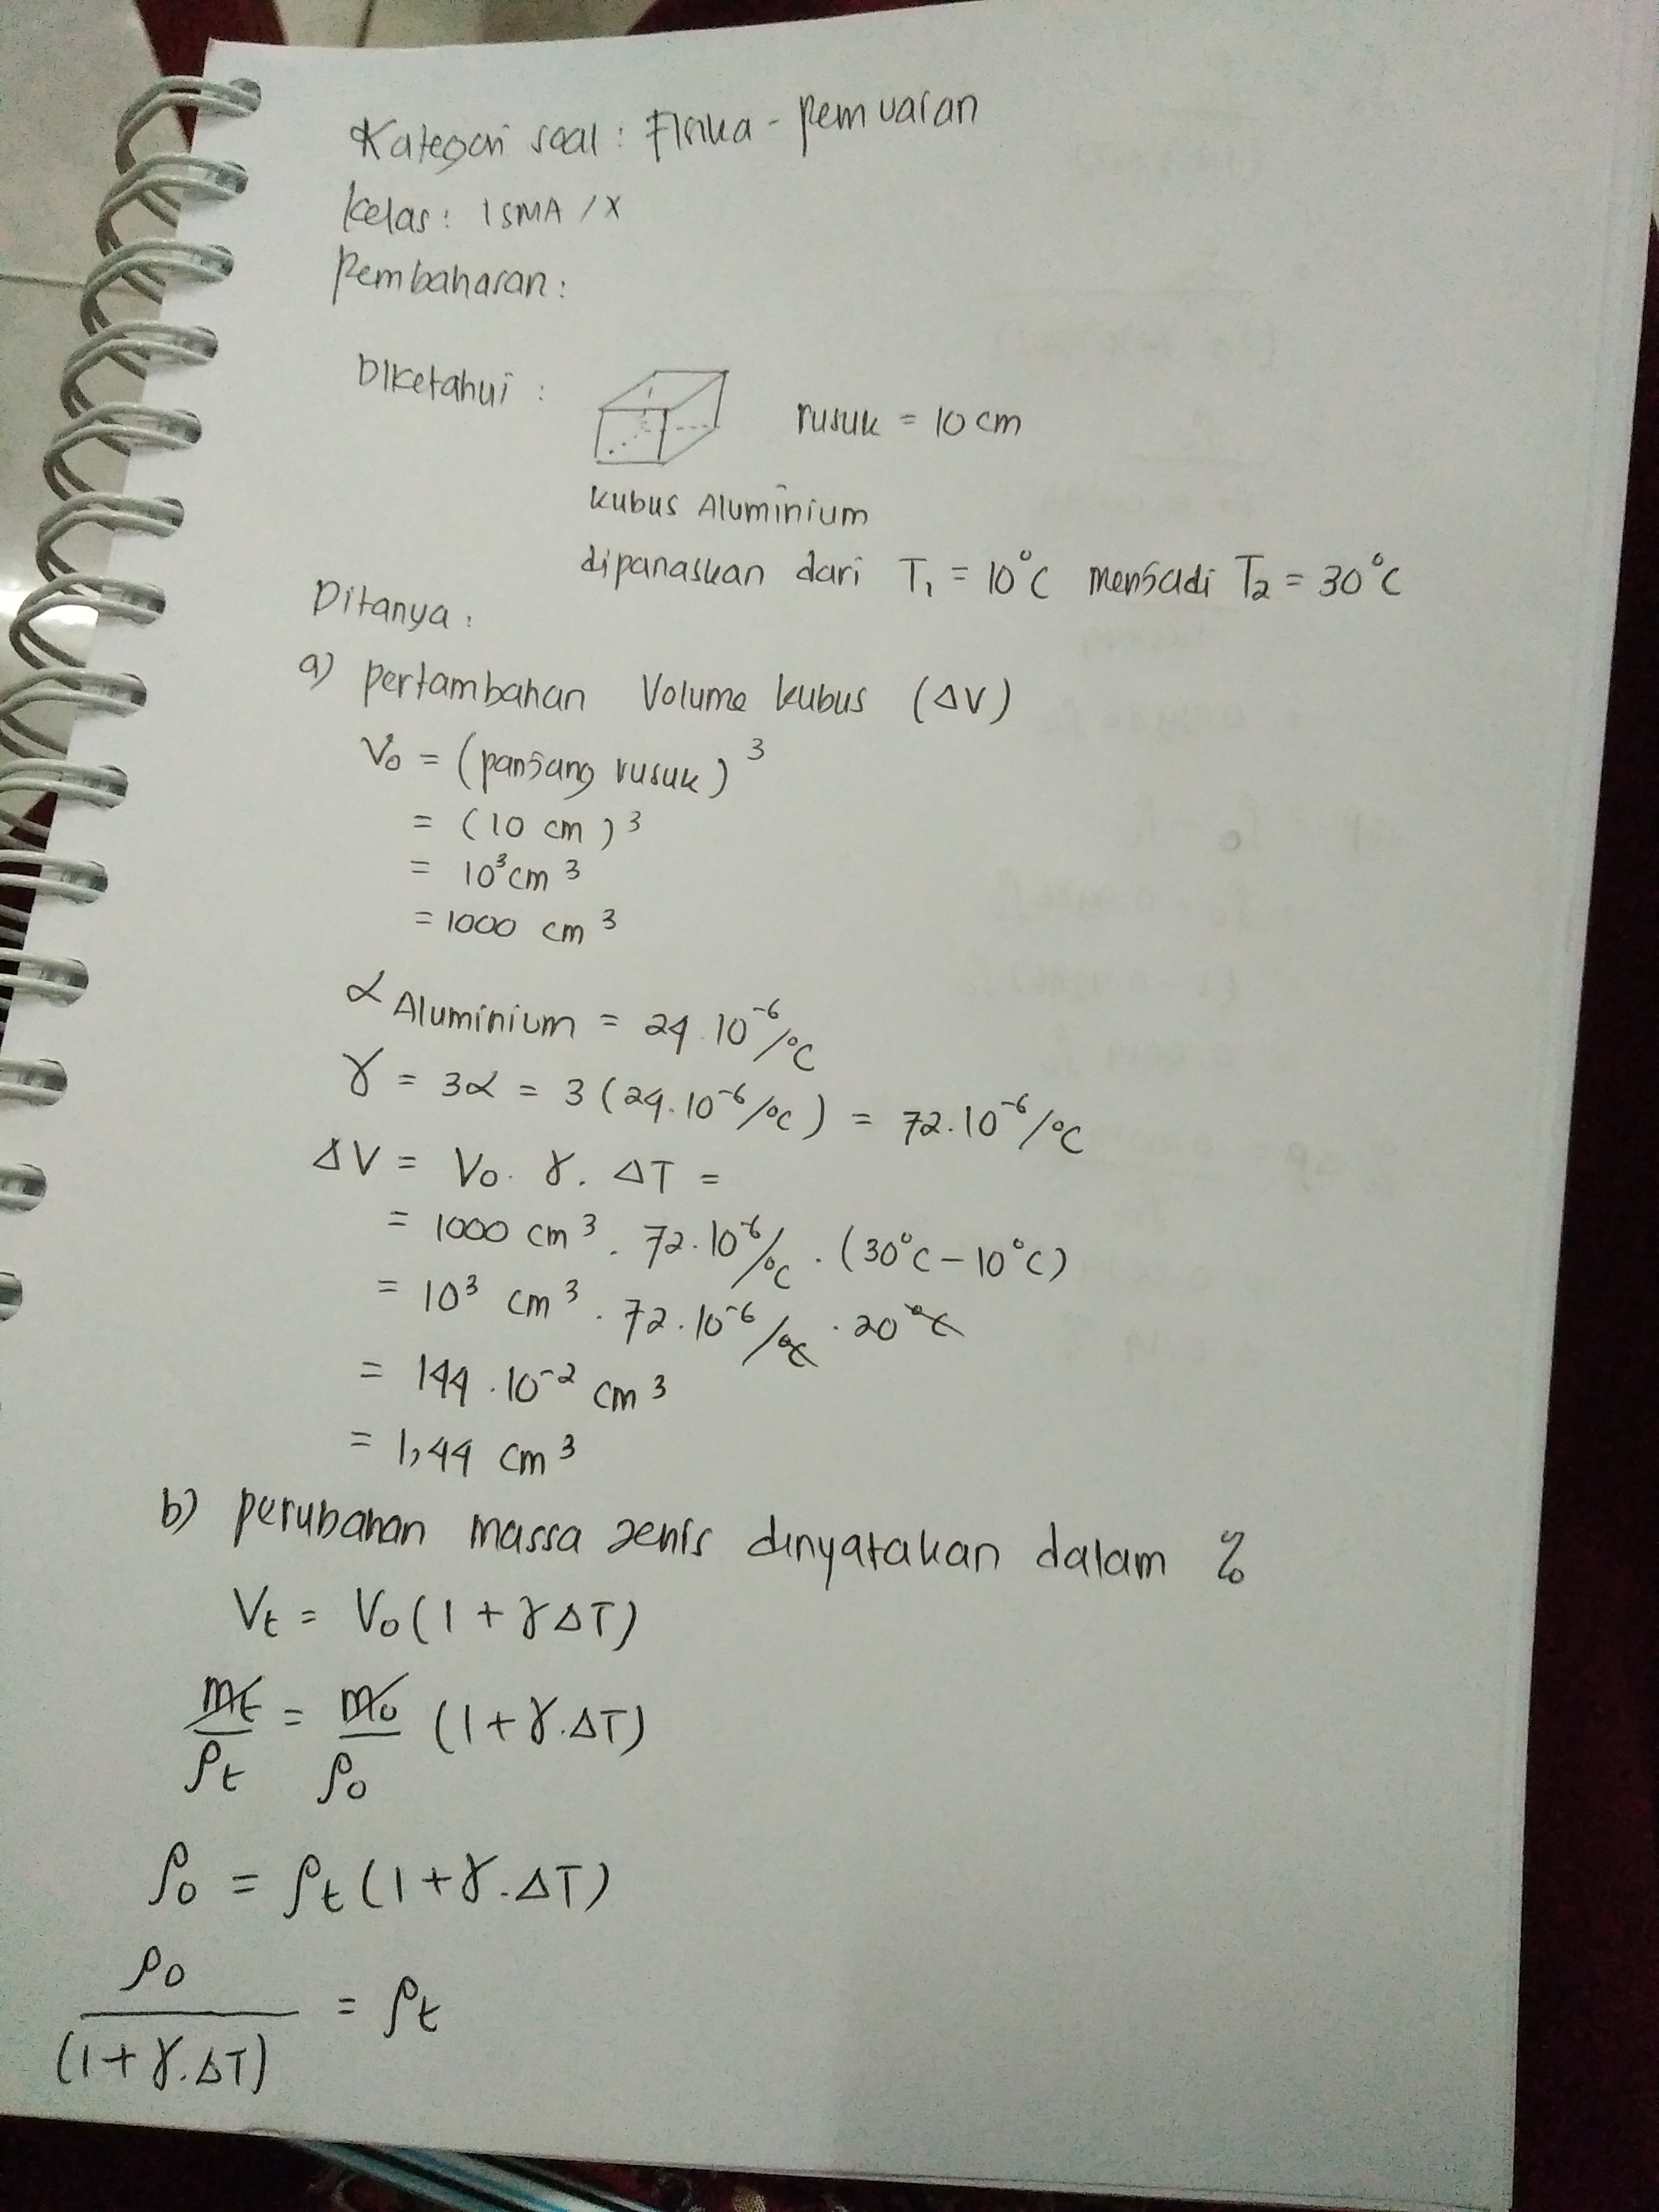 Kategori soal : Fisika - Pemuaian
Kelas : 1 SMA / X
Pembahasan :
Diketahui :
rusuk = 10 cm
kubus Aluminium
dipanaskan dari T₁ = 10°C menjadi T₂ = 30°C
Ditanya :
a) pertambahan Volume kubus (ΔV)
V₀ = (panjang rusuk)³
= (10 cm)³
= 10³ cm³
= 1000 cm³
α Aluminium = 24 . 10⁻⁶/°C
γ = 3α = 3 (24 . 10⁻⁶/°C) = 72 . 10⁻⁶/°C
ΔV = V₀ . γ . ΔT =
= 1000 cm³ . 72 . 10⁻⁶/°C . (30°C – 10°C)
= 10³ cm³ . 72 . 10⁻⁶/°C . 20°C
= 144 . 10⁻² cm³
= 1,44 cm³
b) perubahan massa jenis dinyatakan dalam %
Vt = V₀ (1 + γ ΔT)
mt/ρt = m₀/ρ₀ (1 + γ . ΔT)
ρ₀ = ρt (1 + γ . ΔT)
ρ₀/(1 + γ . ΔT) = ρt